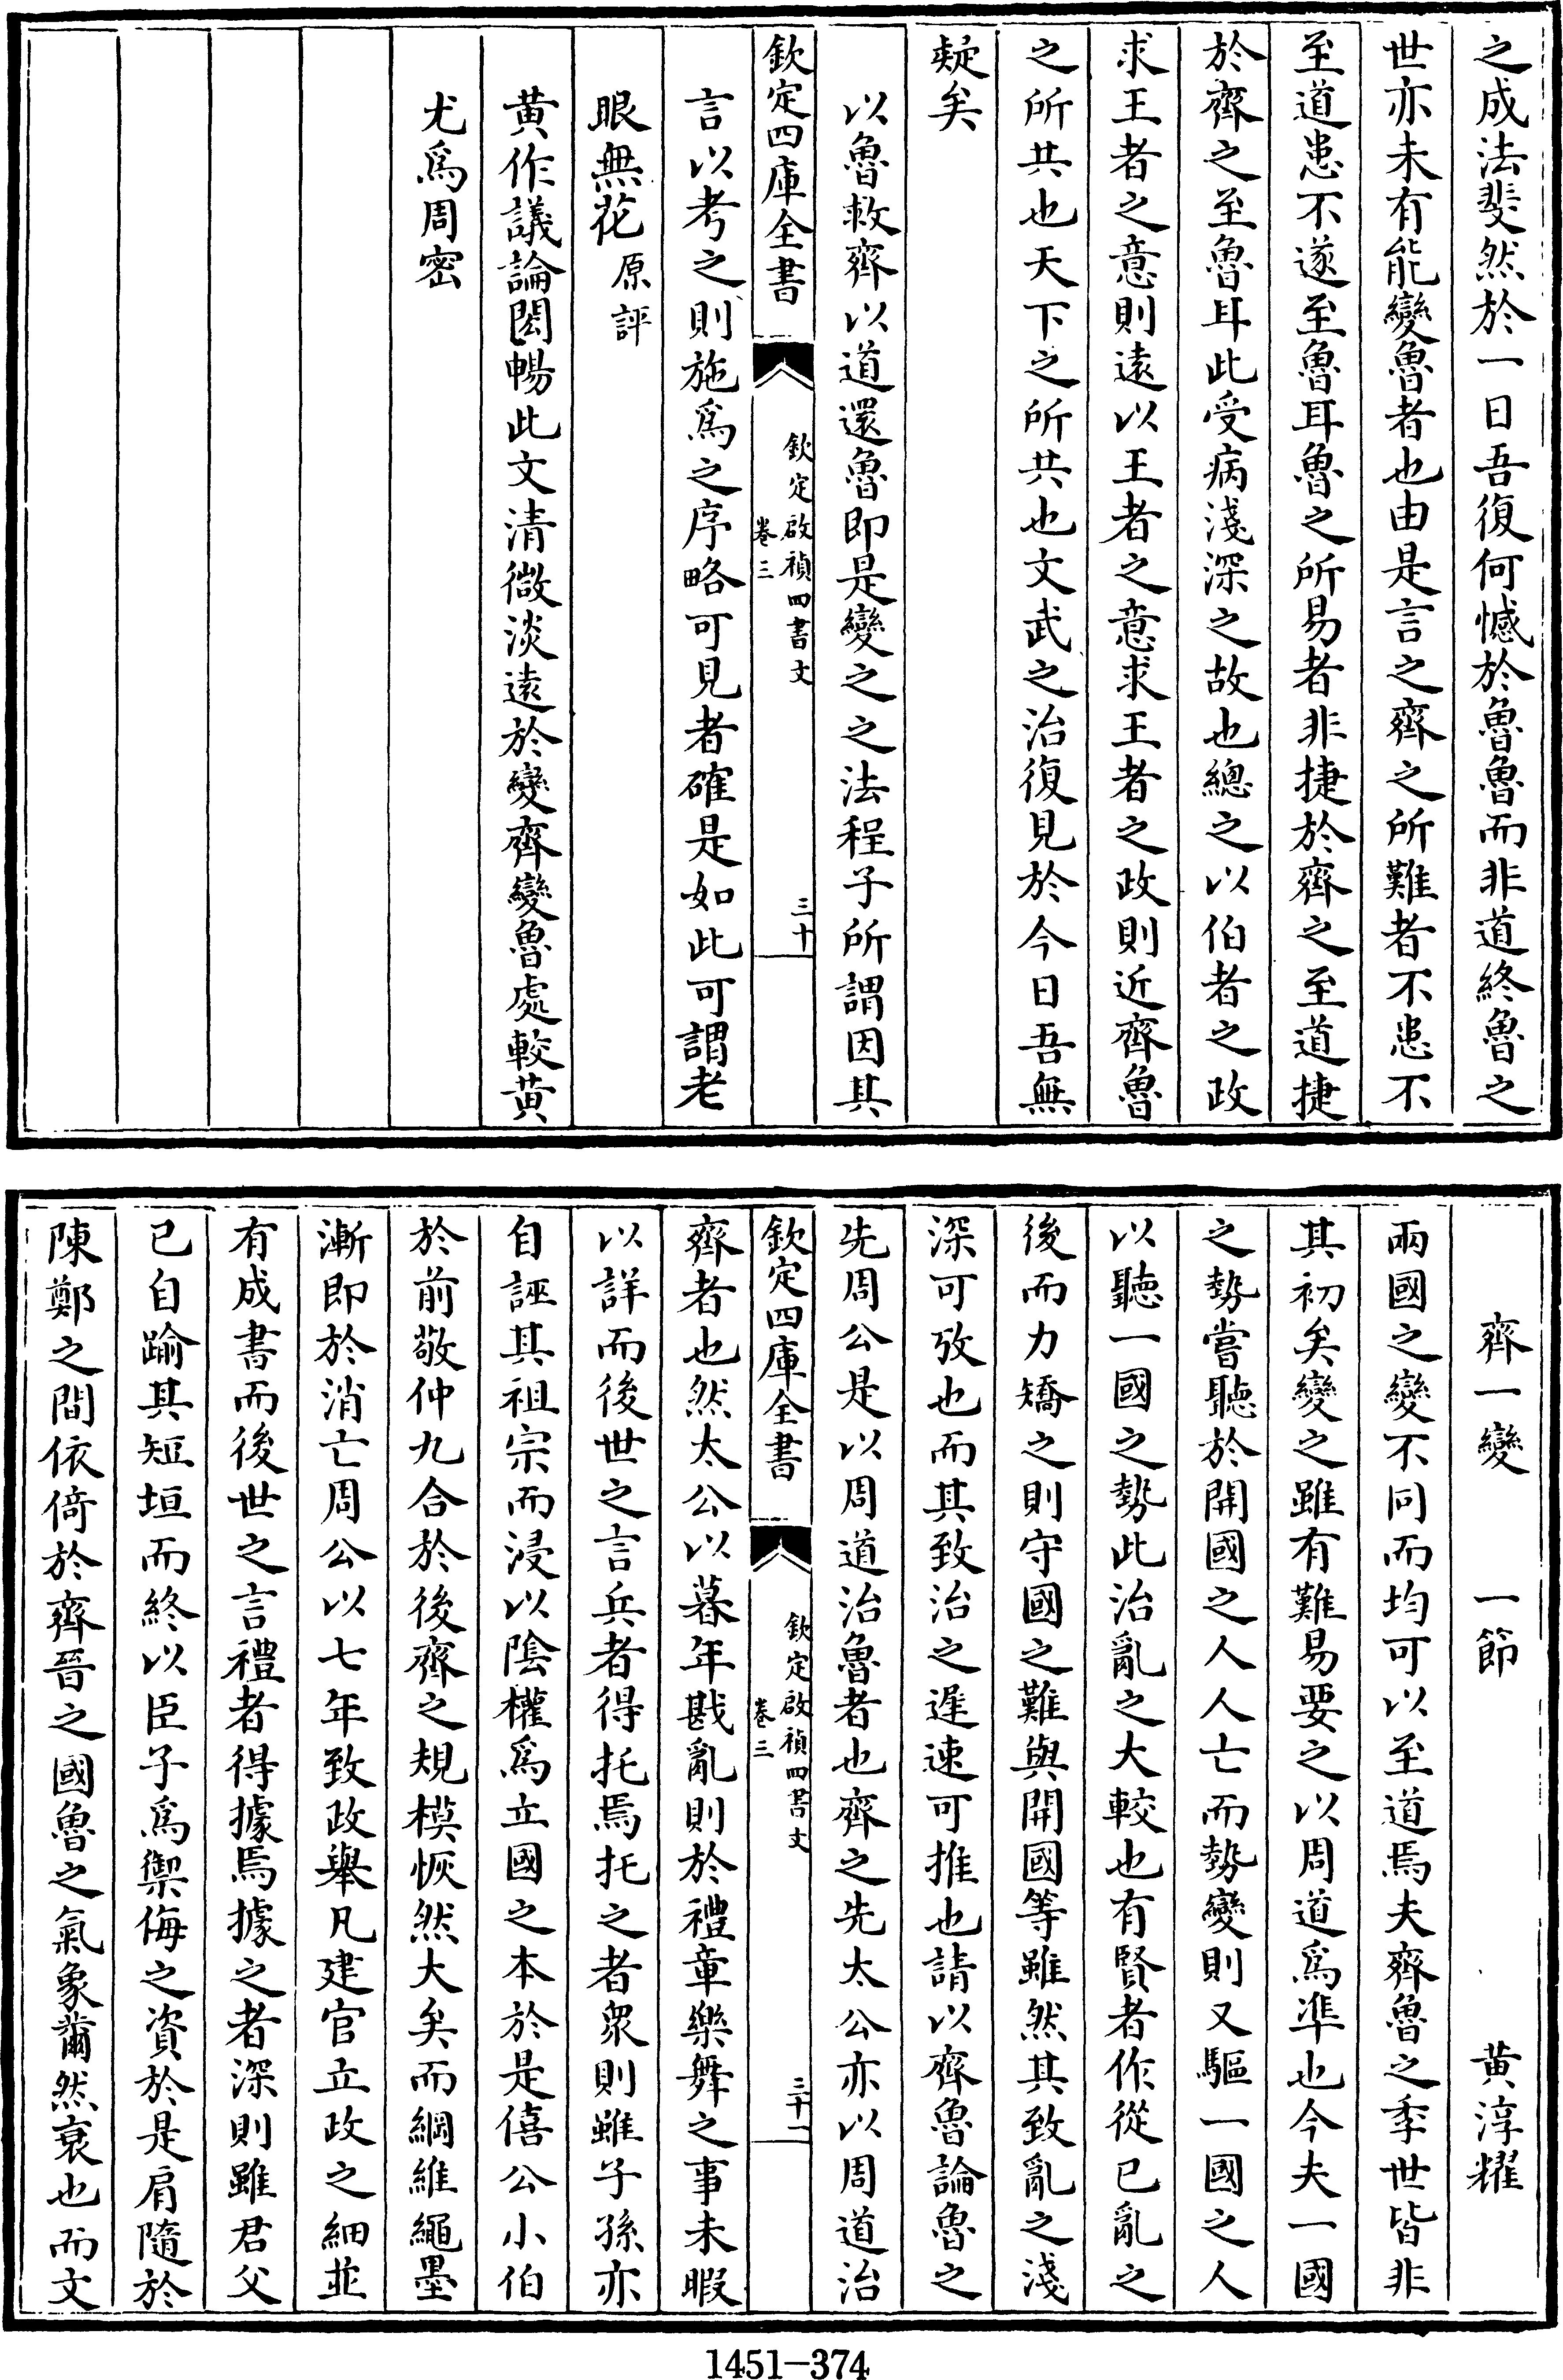 之成法斐然於一日吾復何憾於魯魯而非道終魯之
世亦未有能變魯者也由是言之齊之所難者不患不
至道患不遂至魯耳魯之所易者非捷於齊之至道捷
於齊之至魯耳此受病淺深之故也總之以伯者之政
求王者之意則遠以王者之意求王者之政則近齊魯
之所共也天下之所共也文武之治復見於今日吾無
疑矣
以魯救齊以道還魯即是變之之法程子所謂因其
欽定四庫全書
欽定啟禎四書文
卷三
三十
言以考之則施為之序略可見者確是如此可謂老
眼無花原評
黃作議論閎暢此文清微淡遠於變齊變魯處較黃
尤為周密
齊一變 一節 黃淳耀
兩國之變不同而均可以至道焉夫齊魯之季世皆非
其初矣變之雖有難易要之以周道為準也今夫一國
之勢嘗聽於開國之人人亡而勢變則又驅一國之人
以聽一國之勢此治亂之大較也有賢者作從已亂之
後而力矯之則守國之難與開國等雖然其致亂之淺
深可攷也而其致治之遲速可推也請以齊魯論魯之
先周公是以周道治魯者也齊之先太公亦以周道治
欽定四庫全書
欽定啟禎四書文
卷三
三十一
齊者也然太公以暮年戡亂則於禮章樂舞之事未暇
以詳而後世之言兵者得托焉托之者衆則雖子孫亦
自誣其祖宗而浸以陰權為立國之本於是僖公小伯
於前敬仲九合於後齊之規模恢然大矣而綱維繩墨
漸即於消亡周公以七年致政舉凡建官立政之細並
有成書而後世之言禮者得據焉據之者深則雖君父
已自踰其短垣而終以臣子為禦侮之資於是肩隨於
陳鄭之間依倚於齊晉之國魯之氣象薾然衰也而文
1451-374